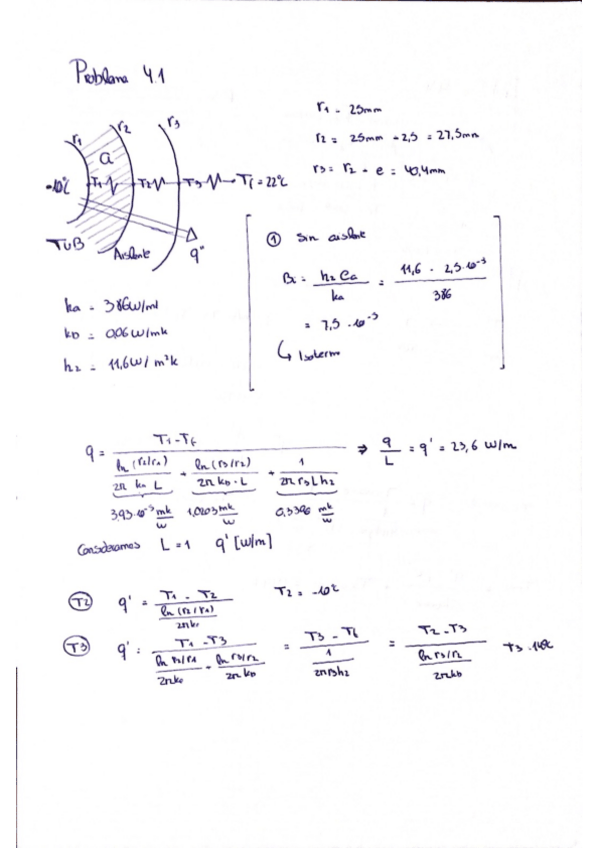 Problema 4.1
r1 r2 r3
a
-10ºC T1 T2 T3 Tf = 22ºC
TUB Aislante q"
r1 = 25mm
r2 = 25mm + 2,5 = 27,5mm
r3 = r2 + e = 40,4mm
① Sin aislante
Bi = h2 ea / ka = 11,6 · 2,5·10⁻³ / 386
= 7,5·10⁻³
↳ Isotermo
ka = 386W/mk
kb = 0,06W/mk
h2 = 11,6W/m²k
q = T1-Tf / ( ln(r2/r1) / 2π ka L + ln(r3/r2) / 2π kb·L + 1 / 2π r3 L h2 ) ⇒ q/L = q' = 23,6 W/m
3,93·10⁻⁵ mk/W 1,0203 mk/W 0,3396 mk/W
Consideramos L=1 q' [W/m]
T2 q' = T1 - T2 / ( ln(r2/r1) / 2πka ) T2 = -10ºC
T3 q' = T1 - T3 / ( ln r2/r1 / 2πka + ln r3/r2 / 2πkb ) = T3 - Tf / ( 1 / 2πr3h2 ) = T2 - T3 / ( ln r3/r2 / 2πkb ) T3 = 14ºC